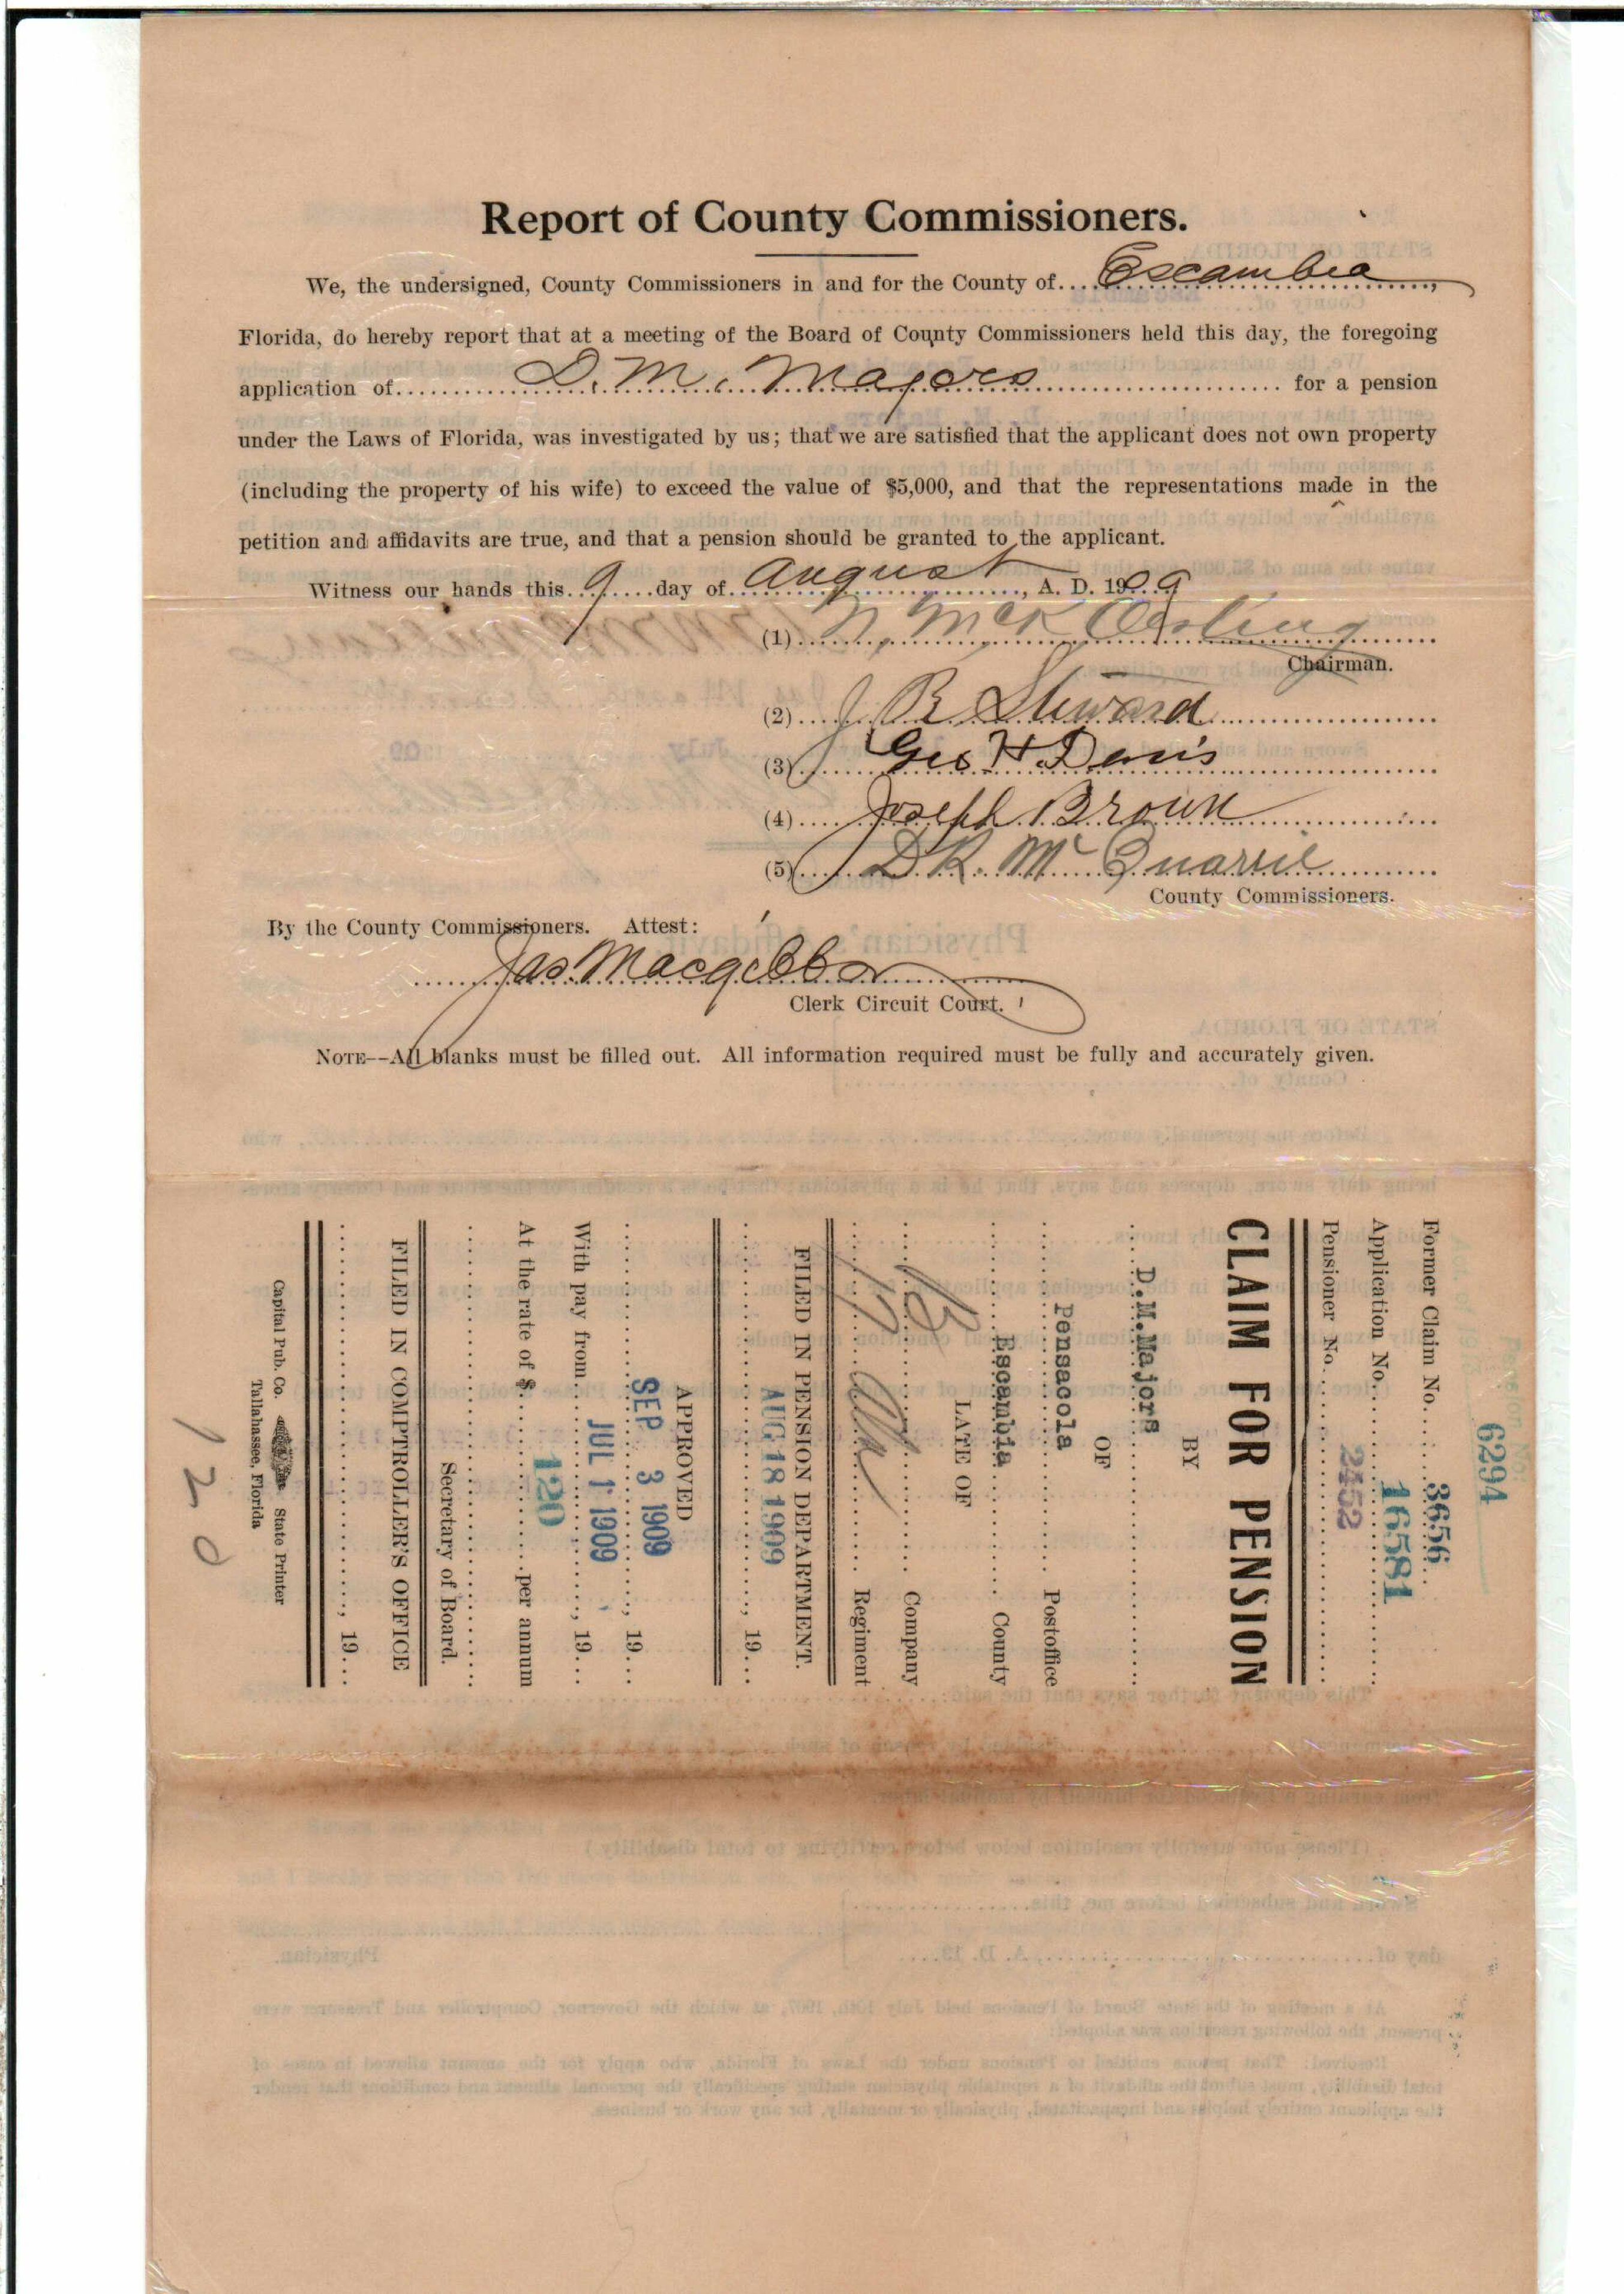 Report of County Commissioners.
We, the undersigned, County Commissioners in and for the County of....Escambia....,
Florida, do hereby report that at a meeting of the Board of County Commissioners held this day, the foregoing
application of....D. M. Majors.... for a pension
under the Laws of Florida, was investigated by us; that we are satisfied that the applicant does not own property
(including the property of his wife) to exceed the value of $5,000, and that the representations made in the
petition and affidavits are true, and that a pension should be granted to the applicant.
Witness our hands this..9....day of..August...., A. D. 1909
(1)....N. McK Oerting....
Chairman.
(2)....J R Steward....
(3)....Geo H. Davis....
(4)....Joseph Brown....
(5)....D. K. McQuarrie....
County Commissioners.
By the County Commissioners. Attest:
....Jas. Macgibbon....
Clerk Circuit Court.
NOTE--All blanks must be filled out. All information required must be fully and accurately given.
6294
Former Claim No....3656...
Application No....16581....
Pensioner No....2452....
CLAIM FOR PENSION
BY
....D.M.Majors....
OF
....Pensacola.... Postoffice
....Escambia.... County
LATE OF
....B.... Company
....17.. Ala.... Regiment
FILED IN PENSION DEPARTMENT.
....AUG 18 1909...., 19...
APPROVED
....SEP 3 1909...., 19...
With pay from....JUL 1 1909...., 19...
At the rate of $....120....per annum
Secretary of Board.
FILED IN COMPTROLLER'S OFFICE
...., 19...
Capital Pub. Co. State Printer
Tallahassee, Florida
120